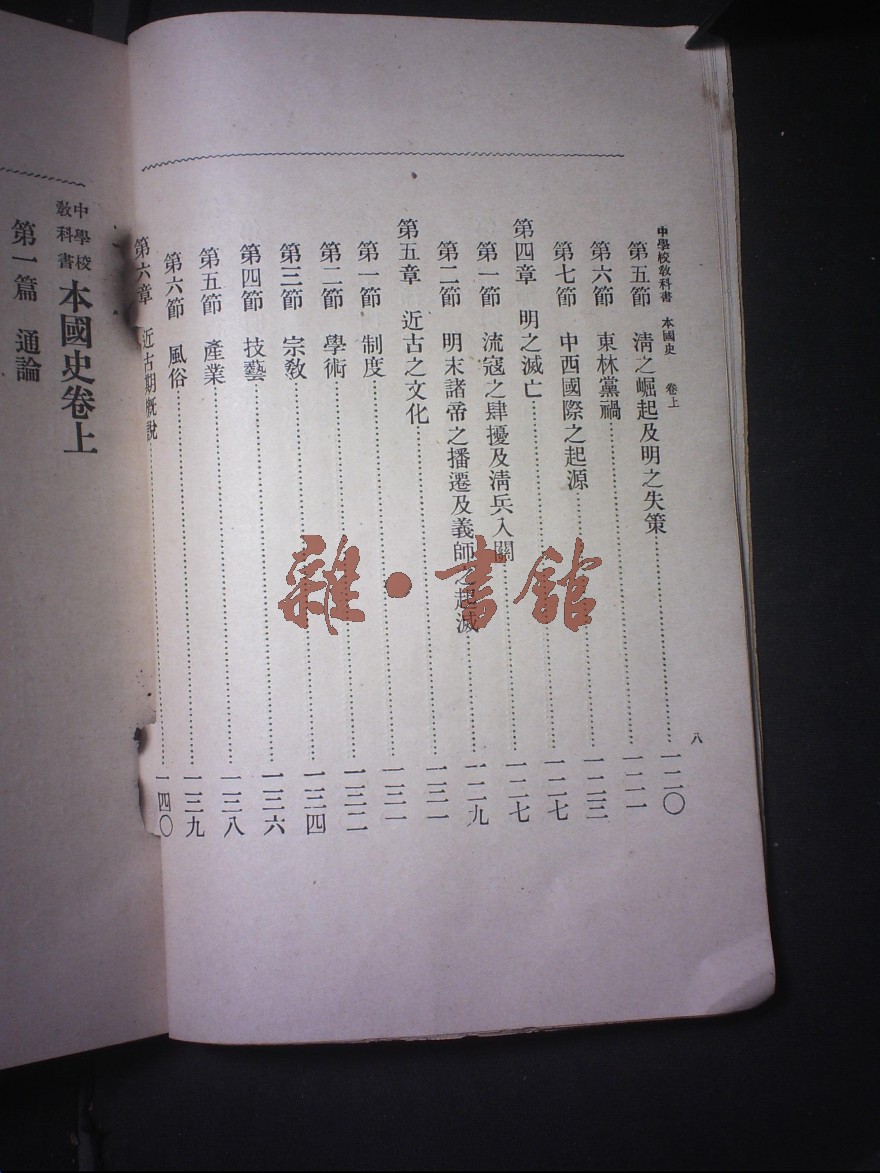 中學校教科書 本國史 卷上 八
第五節 淸之崛起及明之失策 一二〇
第六節 東林黨禍 一二一
第七節 中西國際之起源 一二三
第四章 明之滅亡 一二七
第一節 流寇之肆擾及淸兵入關 一二七
第二節 明末諸帝之播遷及義師之起滅 一二九
第五章 近古之文化 一三一
第一節 制度 一三一
第二節 學術 一三二
第三節 宗敎 一三四
第四節 技藝 一三六
第五節 產業 一三八
第六節 風俗 一三九
第六章 近古期概說 一四〇
中學校
敎科書
本國史卷上
第一篇 通論
雜·書館